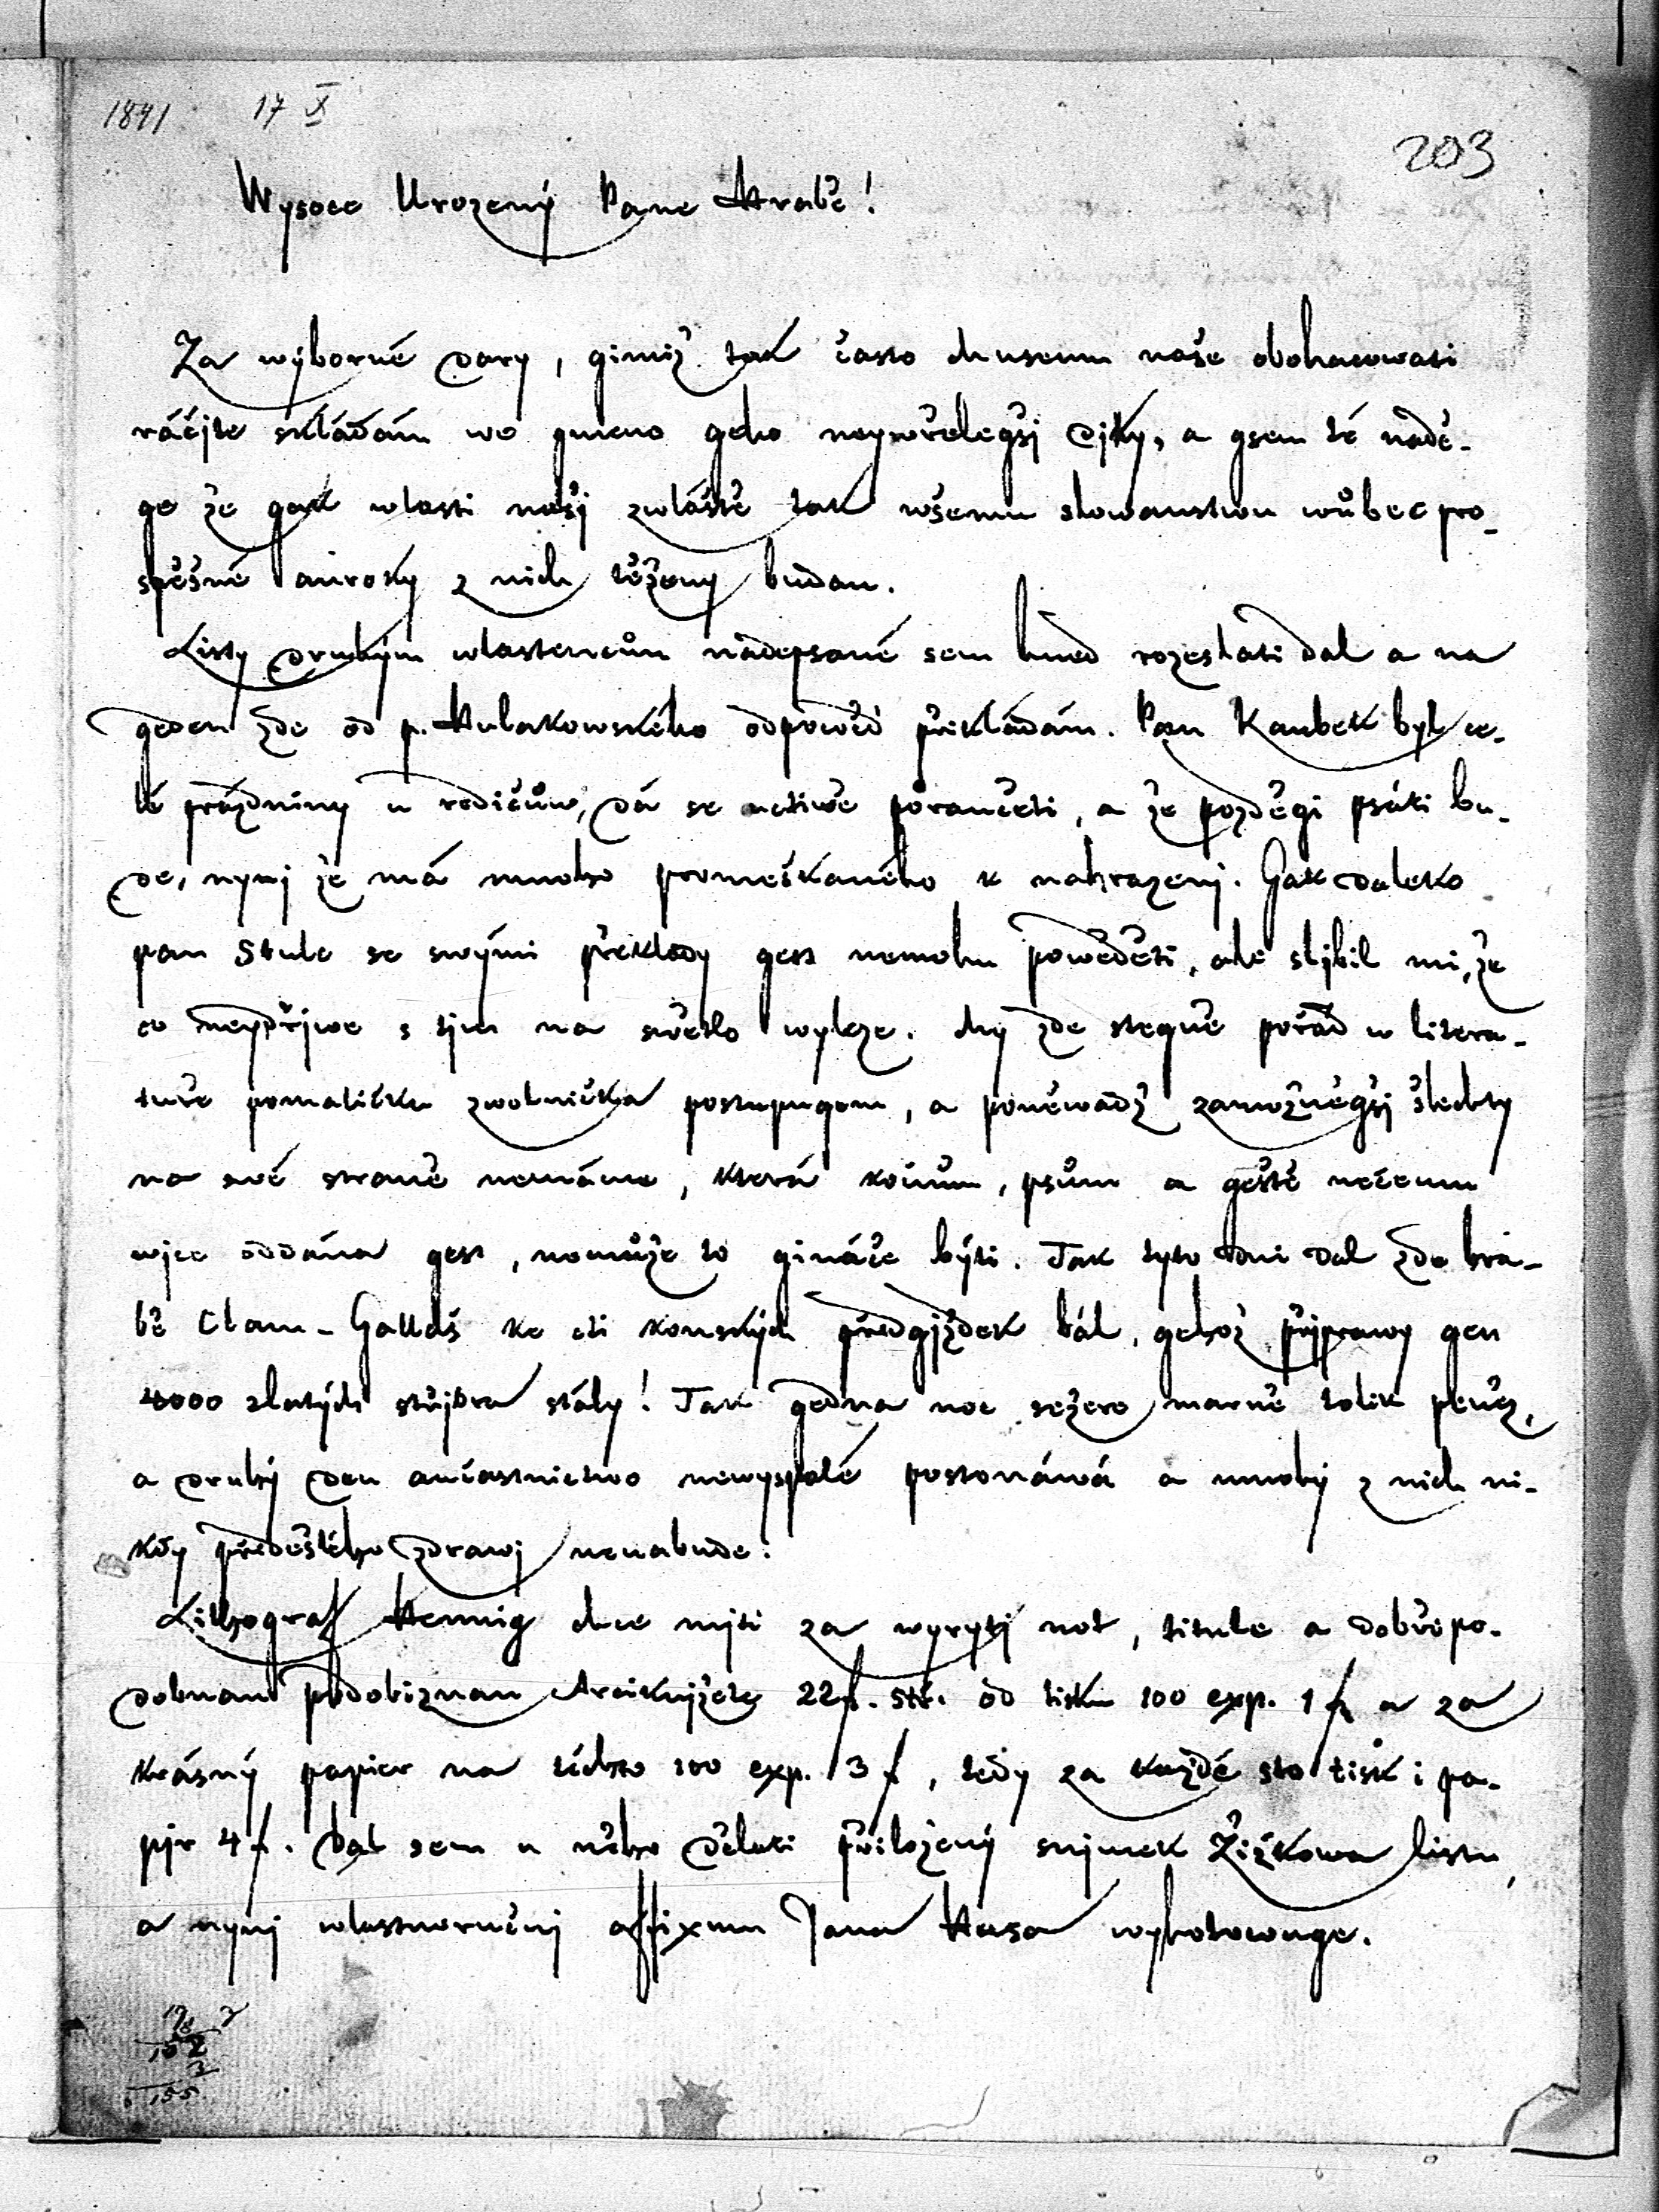 1841 17 X
203
Wysoce Urozený Pane Hrabě!
Za wýborné dary, gimiž tak často Museum naše obohacowati
ráčjte skládám we gmeno geho neywřelegšj djky, a gsem té nádě-
ge že gak wlasti našj zwláště tak wšemu slowanstwu wůbec pro-
spěšné auroky z nich těženy budau.
Listy druhým wlastencům nadepsané sem hned rozeslati dal a na
geden zde od p. Hulakowského odpowěd přikládám. Pan Kaubek byl ce-
lé prázdniny u rodičůw, dá se uctiwě poraučeti, a že pozděgi psáti bu-
de, nynj že má mnoho promeškaného k nahrazenj. Gak daleko
pan Stulc se swými překlady gest nemohu powěděti, ale sljbil mi, že
co neypřjwe s tjm na swětlo wyleze. My zde stegně pořád w litera-
tuře pomaličku zwolnička postupugem, a poněwadž zámožněgšj šlechty
na swé straně nemáme, která koňům, psům a geště něčemu
wjce oddána gest, nemůže to gináče býti. Tak tyto dni dal zde hra-
bě Clam-Gallas ke cti konských předgjždek bál, gehož přjprawy gen
4000 zlatých střjbra stály! Tak gedna noc sežere marně tolik peněz,
a druhý den aučastnictwo newyspalé postonáwá a mnohý z nich ni-
kdy předešlého zdrawj nenabude!
Lithograf Hennig chce mjti za wyrytj not, titule a dobře po-
dobnau podobiznau Arciknjžete 22 f. stř. od tisku 100 exp. 1 f a za
krásný papier na těchto 100 exp. 3 f, tedy za každé sto tisk i pa-
pjr 4 f. Dal sem u něho dělati přiložený snjmek Žižkowa listu,
a nynj wlastnoručnj affixum Jana Husa wyhotowuge.
102
3
155